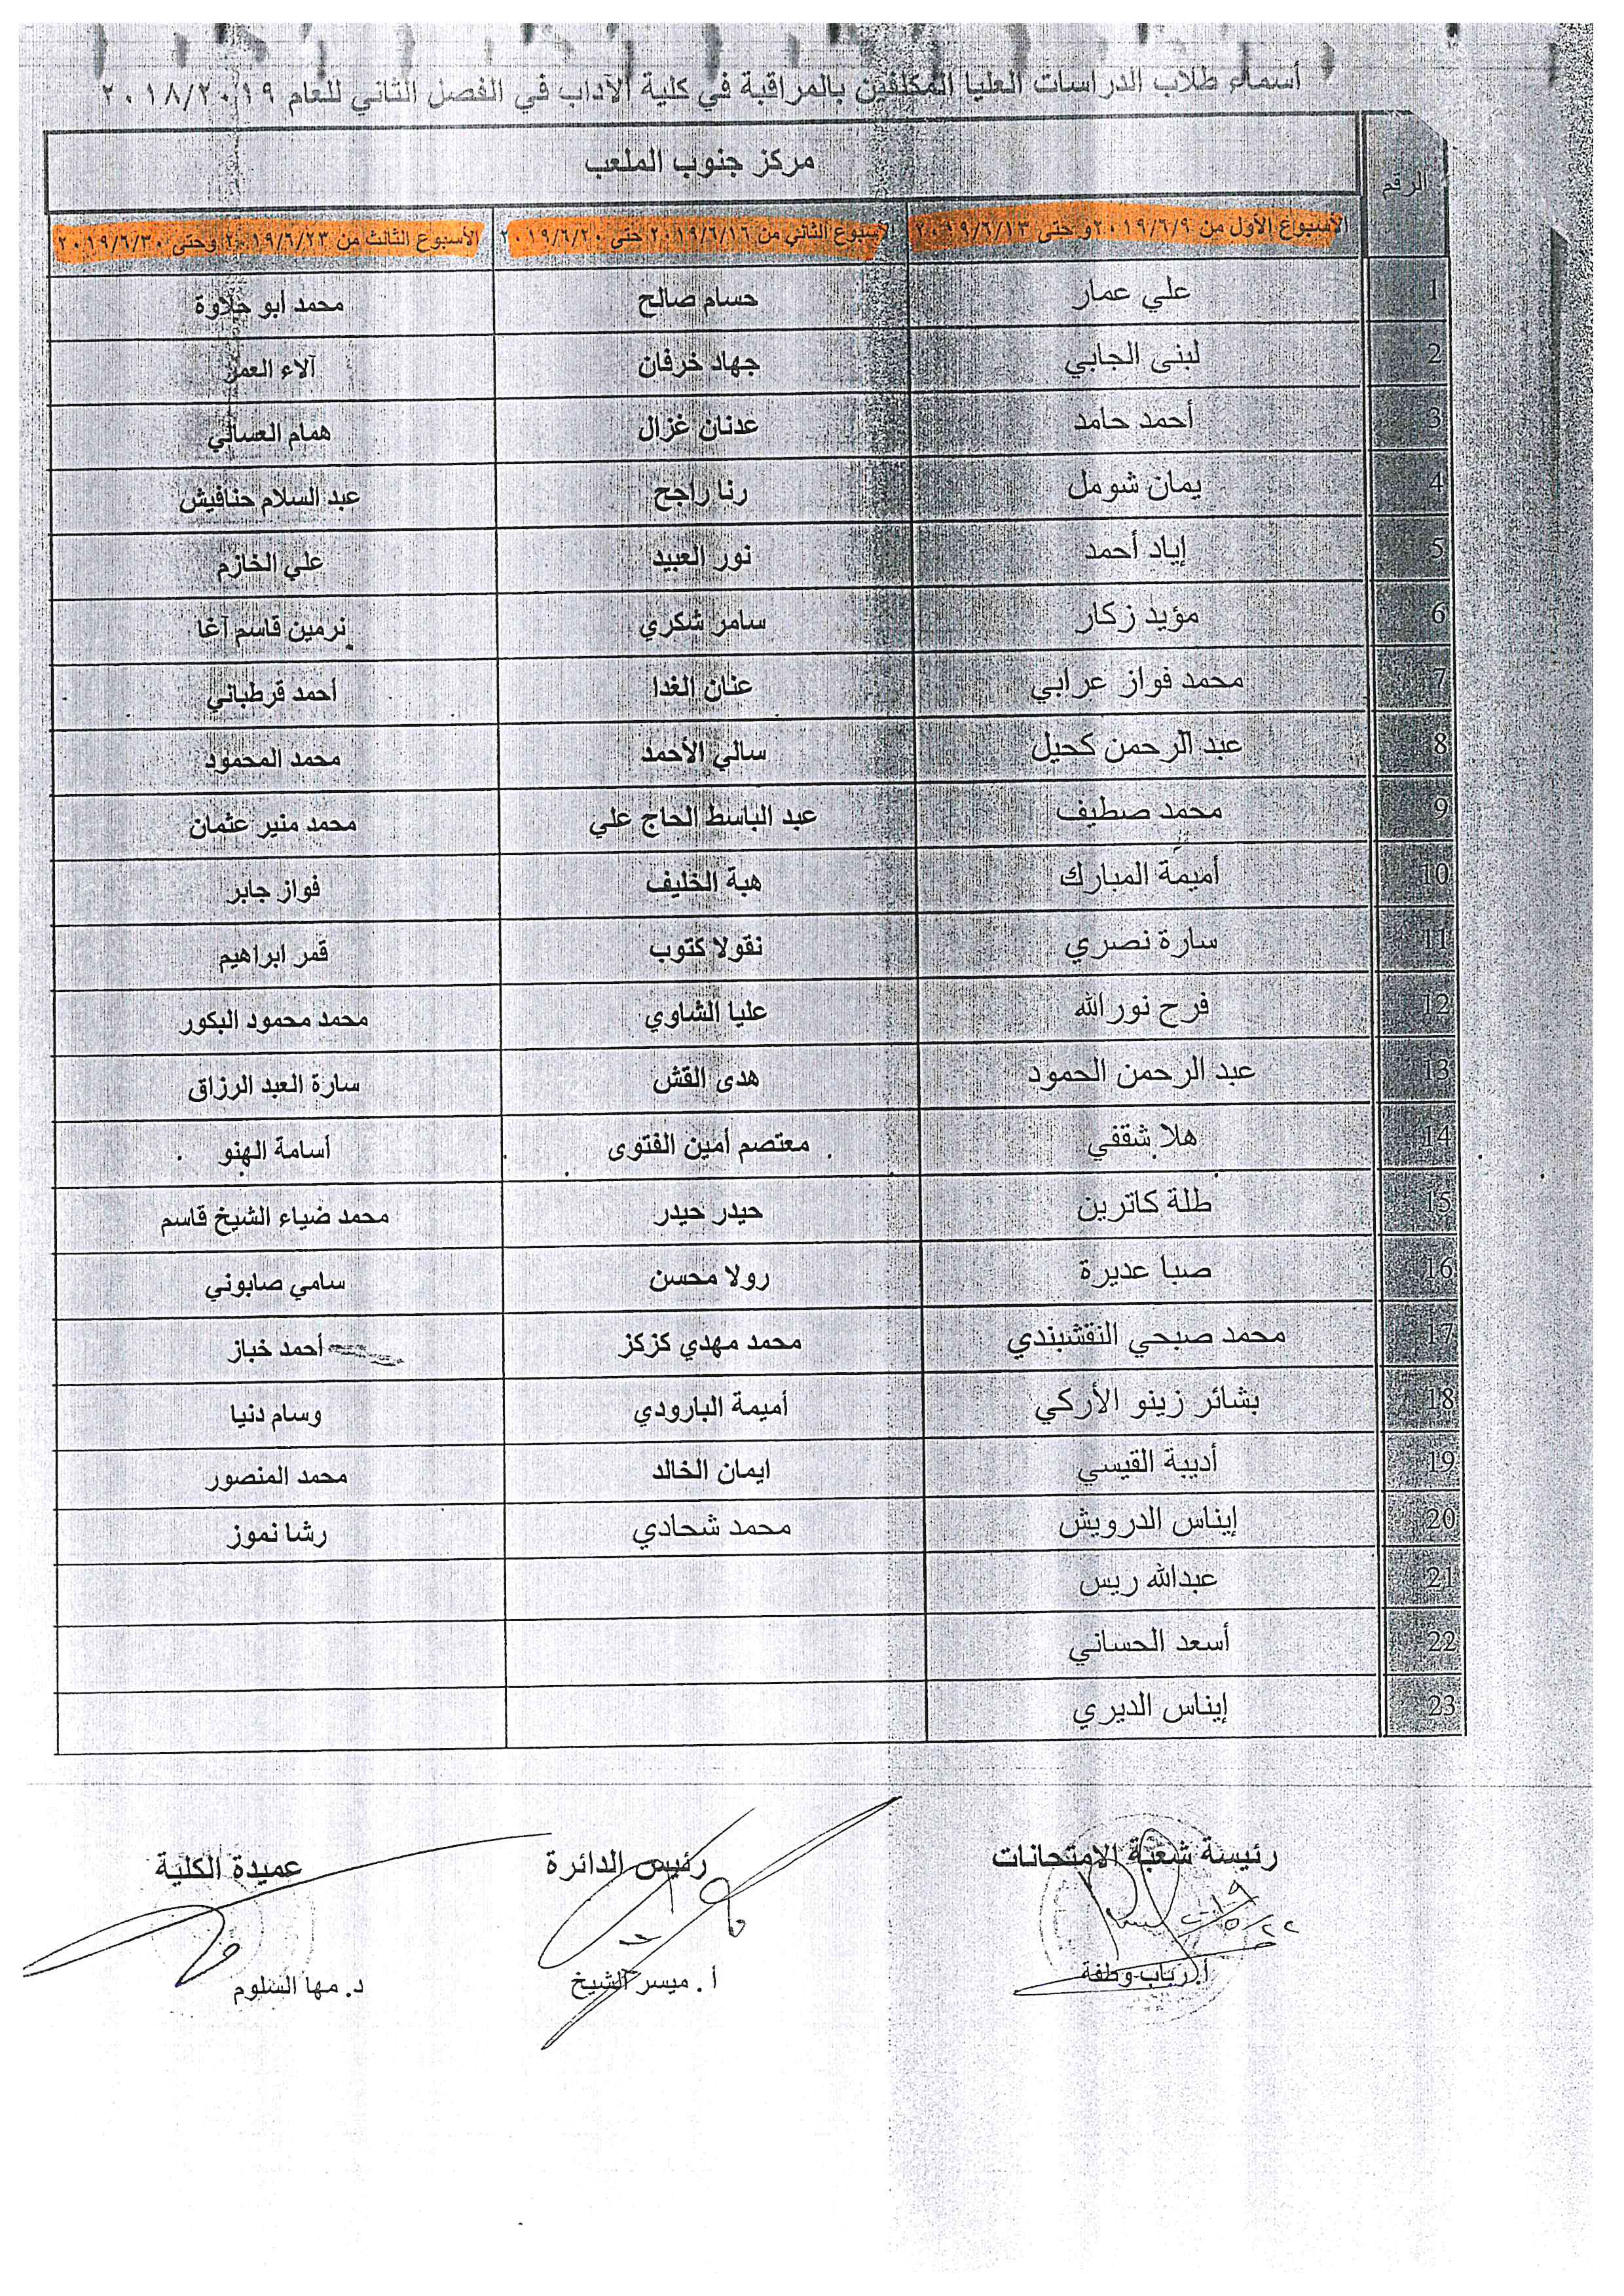 أسماء طلاب الدراسات العليا المكلفين بالمراقبة في كلية الآداب في الفصل الثاني للعام ٢٠١٨/٢٠١٩
الرقم مركز جنوب الملعب
الأسبوع الأول من ٢٠١٩/٦/٩ و حتى ٢٠١٩/٦/١٣ الأسبوع الثاني من ٢٠١٩/٦/١٦ حتى ٢٠١٩/٦/٢٠ الأسبوع الثالث من ٢٠١٩/٦/٢٣ وحتى ٢٠١٩/٦/٣٠
1 علي عمار حسام صالح محمد ابو حلاوة
2 لبنى الجابي جهاد خرفان آلاء العمر
3 أحمد حامد عدنان غزال همام العسالي
4 يمان شومل رنا راجح عبد السلام حنافيش
5 إياد أحمد نور العبيد علي الخازم
6 مؤيد زكار سامر شكري نرمين قاسم آغا
7 محمد فواز عرابي عنان الغدا أحمد قرطباني
8 عبد الرحمن كحيل سالي الأحمد محمد المحمود
9 محمد صطيف عبد الباسط الحاج علي محمد منير عثمان
10 أميمة المبارك هبة الخليف فواز جابر
11 سارة نصري نقولا كتوب قمر ابراهيم
12 فرح نورالله عليا الشاوي محمد محمود البكور
13 عبد الرحمن الحمود هدى القش سارة العبد الرزاق
14 هلا شقفي معتصم أمين الفتوى أسامة الهنو
15 طلة كاترين حيدر حيدر محمد ضياء الشيخ قاسم
16 صبا عديرة رولا محسن سامي صابوني
17 محمد صبحي النقشبندي محمد مهدي كزكز أحمد خباز
18 بشائر زينو الأركي أميمة البارودي وسام دنيا
19 أديبة القيسي ايمان الخالد محمد المنصور
20 إيناس الدرويش محمد شحادي رشا نموز
21 عبدالله ريس
22 أسعد الحساني
23 إيناس الديري
رئيسة شعبة الامتحانات رئيس الدائرة عميدة الكلية
أ. رباب وطفة أ. ميسر الشيخ د. مها السلوم